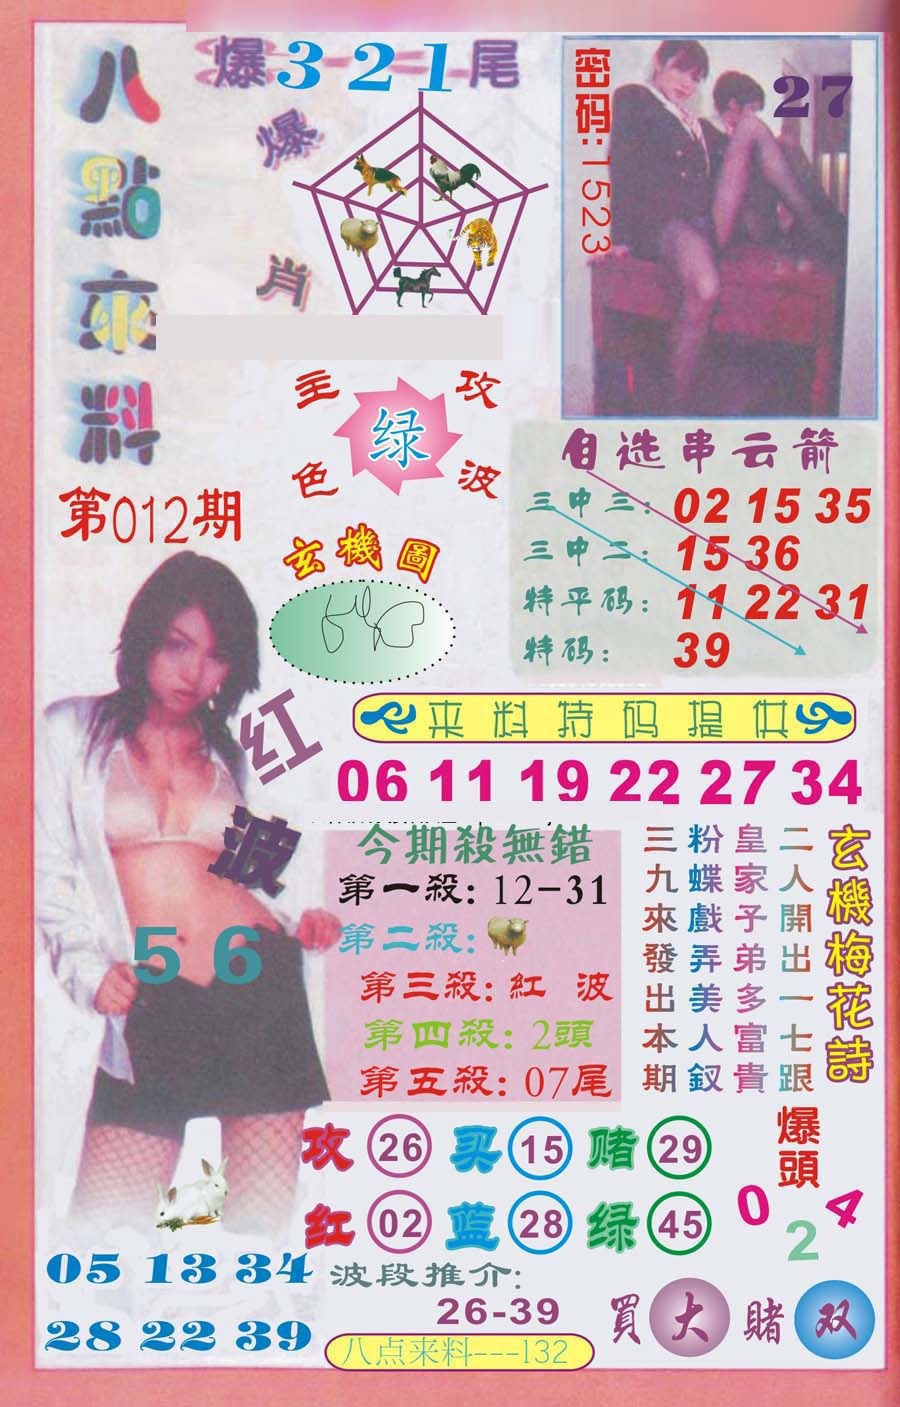 八點來料
爆321尾
爆肖
密码:1523
27
主攻
绿
色波
第012期
玄機圖
自选串云箭
三中三: 02 15 35
三中二: 15 36
特平码: 11 22 31
特码: 39
红波
56
来料特码提供
06 11 19 22 27 34
今期殺無錯
第一殺: 12-31
第二殺:
第三殺: 紅 波
第四殺: 2頭
第五殺: 07尾
玄機梅花詩
二人開出一七跟
皇家子弟多富貴
粉蝶戲弄美人釵
三九來發出本期
攻 26 买 15 赌 29
红 02 蓝 28 绿 45
爆頭
0 2 4
05 13 34
28 22 39
波段推介:
26-39
買 大 賭 双
八点来料---132